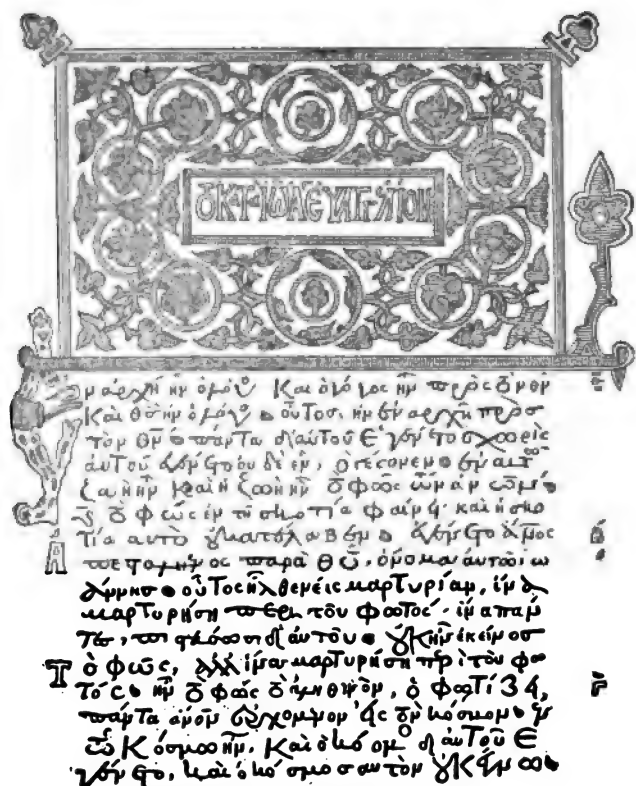 ΤΟ Κ·Τ·ΙΩΑ ΕΥΑΓΓΛΙΟΝ
Ἐν ἀρχῆ ἦν ὁ λόγο Καὶ ὁ λόγος ἦν πρὸς τὸν θν
Καὶ θς ἦν ὁ λόγο. οὗτος, ἦν ἐν ἀρχῆ πρὸσ
τὸν θν. πάντα δι αὐτοῦ Ἐγένετο χωρὶς
αὐτοῦ ἐγένετο οὐδὲ ἓν, ὃ γέγονεν. ἐν αὐτῶ
ζωὴ ἦν καὶ ἡ ζωὴ ἦν τὸ φῶς τῶν ανων
τὸ φῶς ἐν τῆ σκοτία φαίνει· καὶ ἡ σκο
τία αὐτὸ οὐ κατέλαβεν. ἐγένετο ἄνος
ἀπεσταλμένος παρὰ θῦ, ὄνομα αὐτῶ ἰω
άννησ. οὗτος ἦλθεν εἰς μαρτυρίαν, ἵνα
μαρτυρήση περὶ τοῦ φωτός· ἵνα παν
τες, πιστεύσωσι δι αὐτοῦ. οὐκ ἦν ἐκεῖνοσ
τὸ φῶς, ἀλλ ἵνα μαρτυρήση περὶ τοῦ φω
τός. ἦν τὸ φῶς τὸ ἀληθινὸν, ὃ φωτίζει,
πάντα ανον ἐρχόμενον εἰς τὸν κόσμον. ἐν
τῶ Κόσμω ἦν, Καὶ ὁ κόσμο δι αὐτοῦ Ἐ
γένετο, καὶ ὁ κόσμοσ αὐτὸν οὐκ ἔγνω.